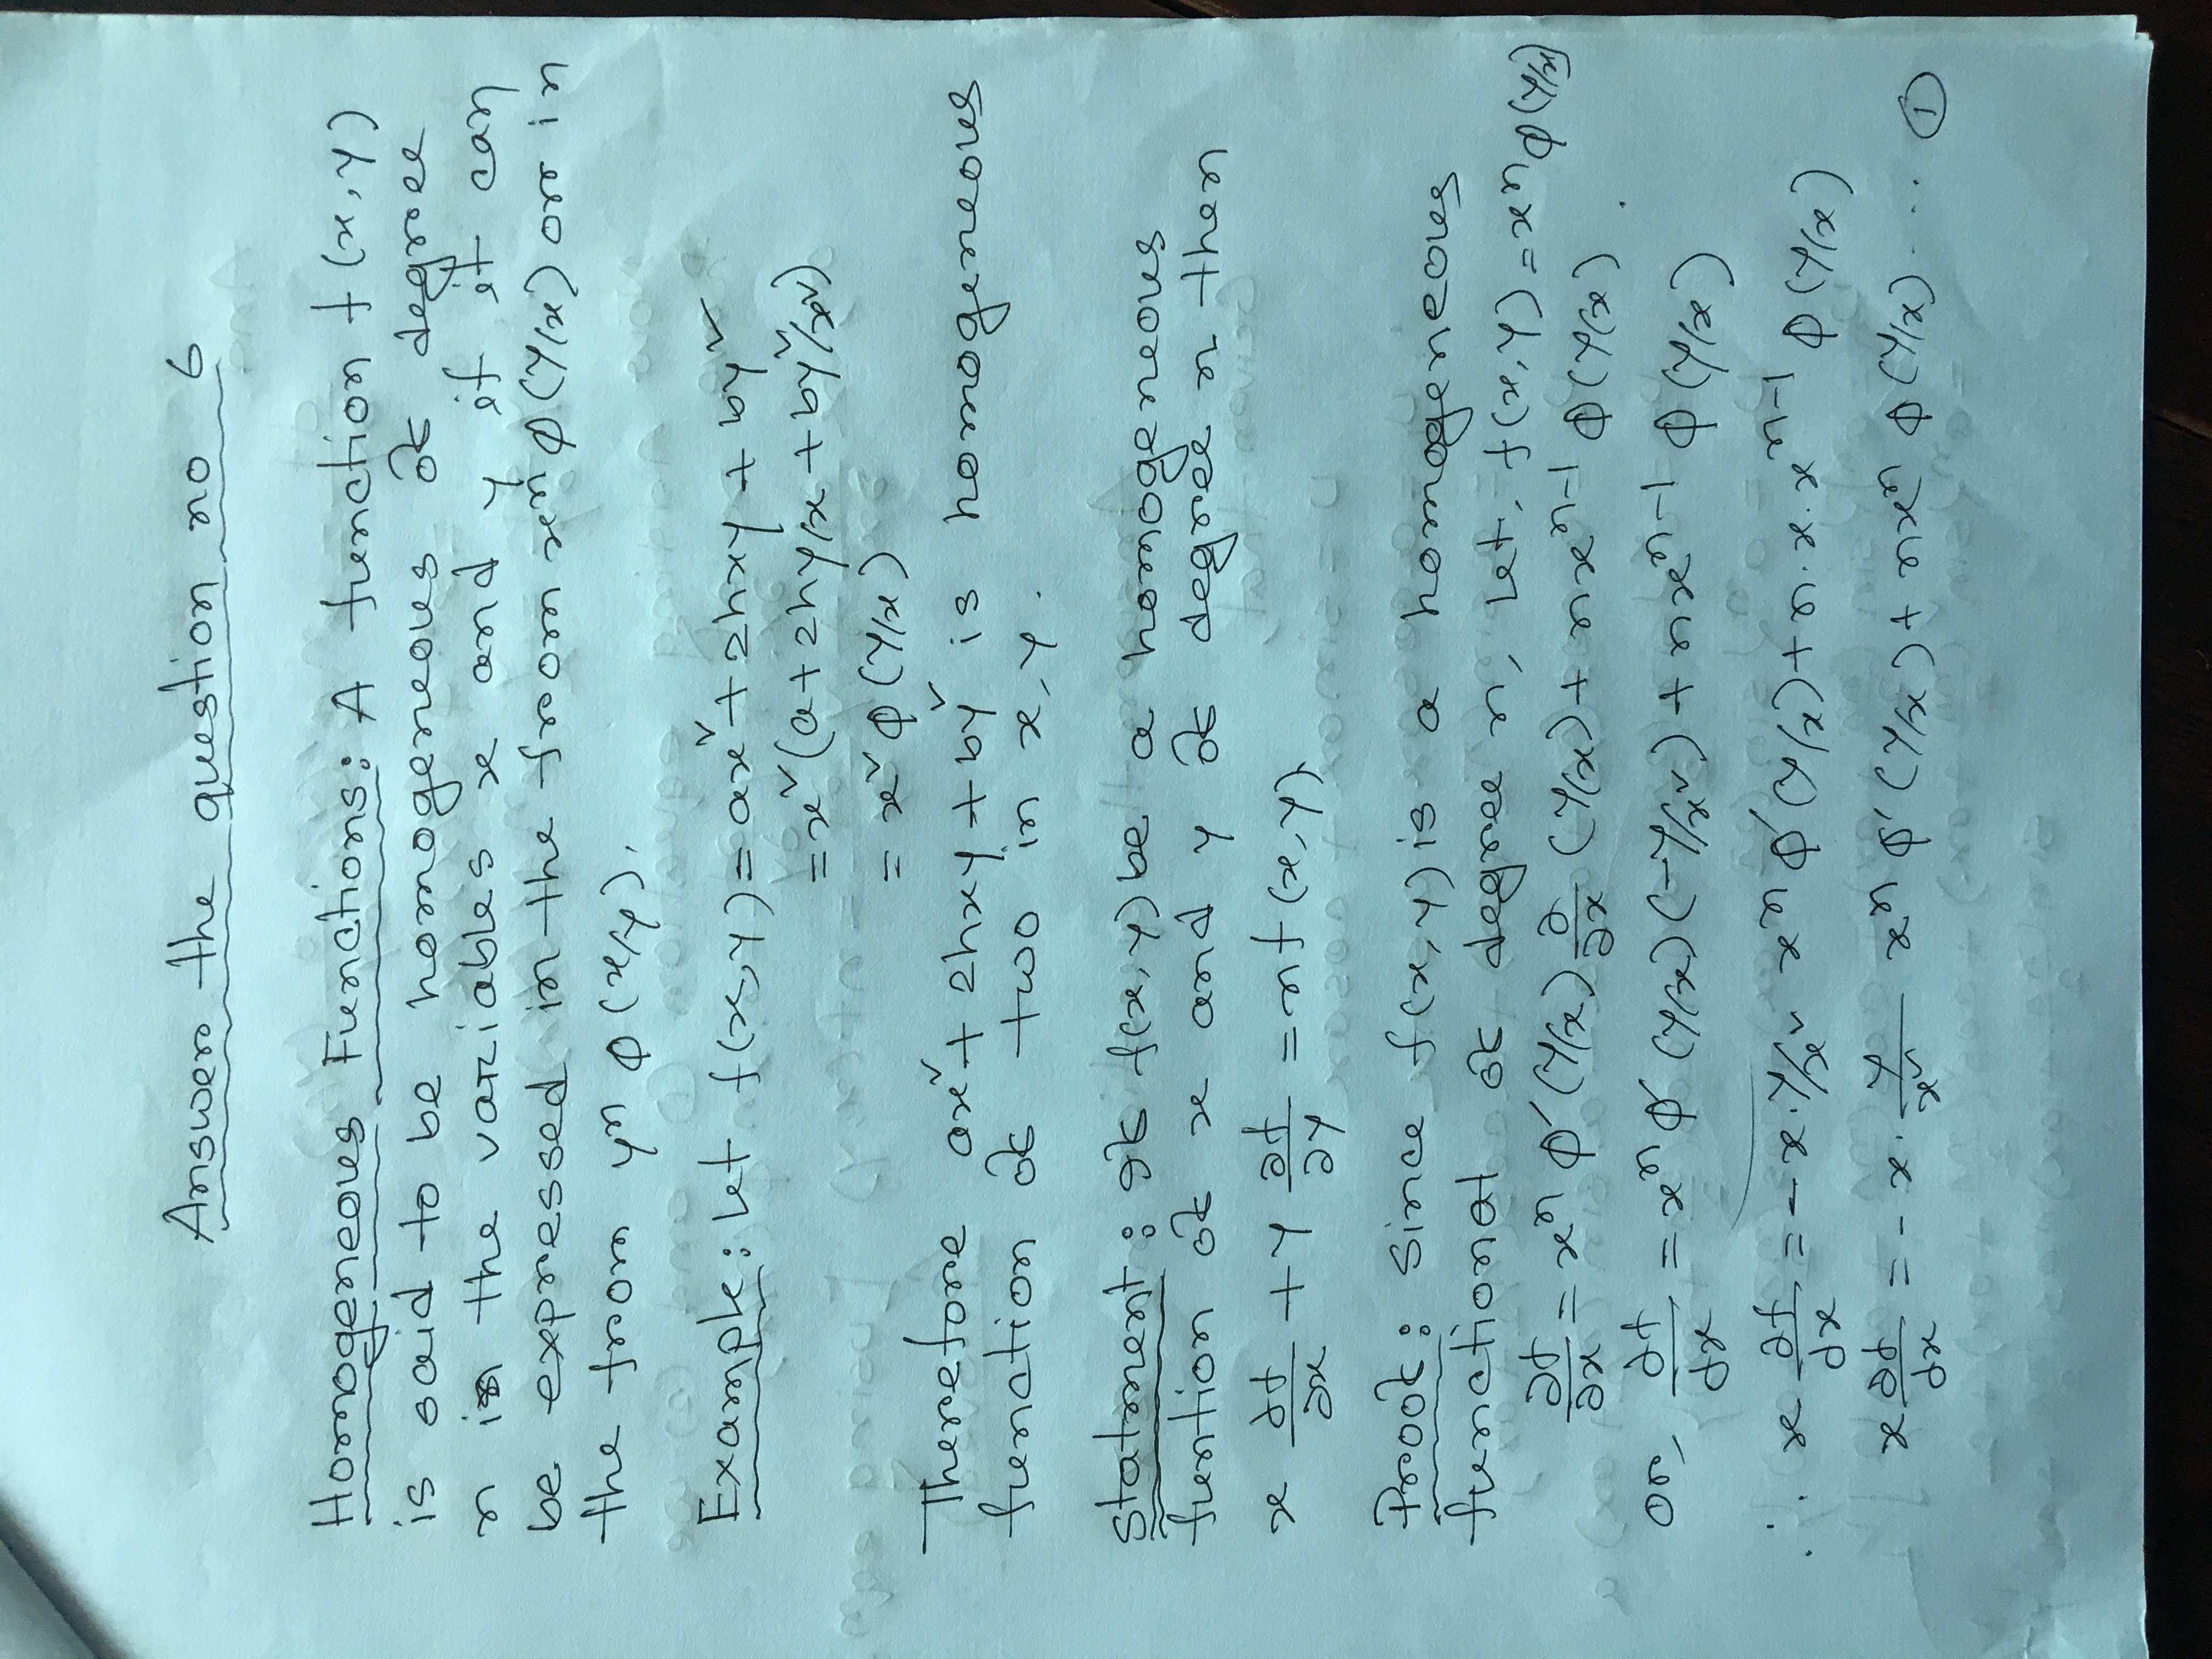 Answer the question no 6
Homogeneous Functions: A function f(x,y)
is said to be homogeneous of degree
n in the variables x and y if it can
be expressed in the from xⁿ φ(y/x) or in
the from yⁿ φ(x/y).
Example: Let f(x,y) = ax² + 2hxy + by²
= x² (a + 2hy/x + by²/x²)
= x² φ(y/x)
Therefore ax² + 2hxy + by² is homogeneous
function of two in x,y.
Statment: If f(x,y) be a homogeneous
funtion of x and y of degree n then
x ∂f/∂x + y ∂f/∂y = nf(x,y)
Proof: Since f(x,y) is a homogeneous
functional of degree n, Let, f(x,y) = xⁿ φ(y/x)
∂f/∂x = xⁿ φ′(y/x) ∂/∂x (y/x) + nxⁿ⁻¹ φ(y/x).
or, ∂f/dx = xⁿ φ′(y/x)(-y/x²) + nxⁿ⁻¹ φ(y/x)
∴ x ∂f/dx = -x.y/x² xⁿ φ′(y/x) + n.x.xⁿ⁻¹ φ(y/x)
x ∂f/dx = -x. y/x² xⁿ φ′(y/x) + nxⁿ φ(y/x) .... ①